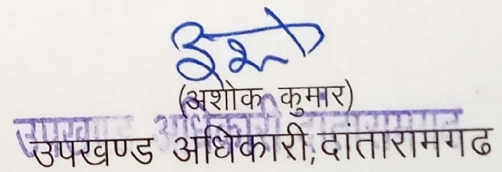 (अशोक कुमार)
उपखण्ड अधिकारी,दांतारामगढ